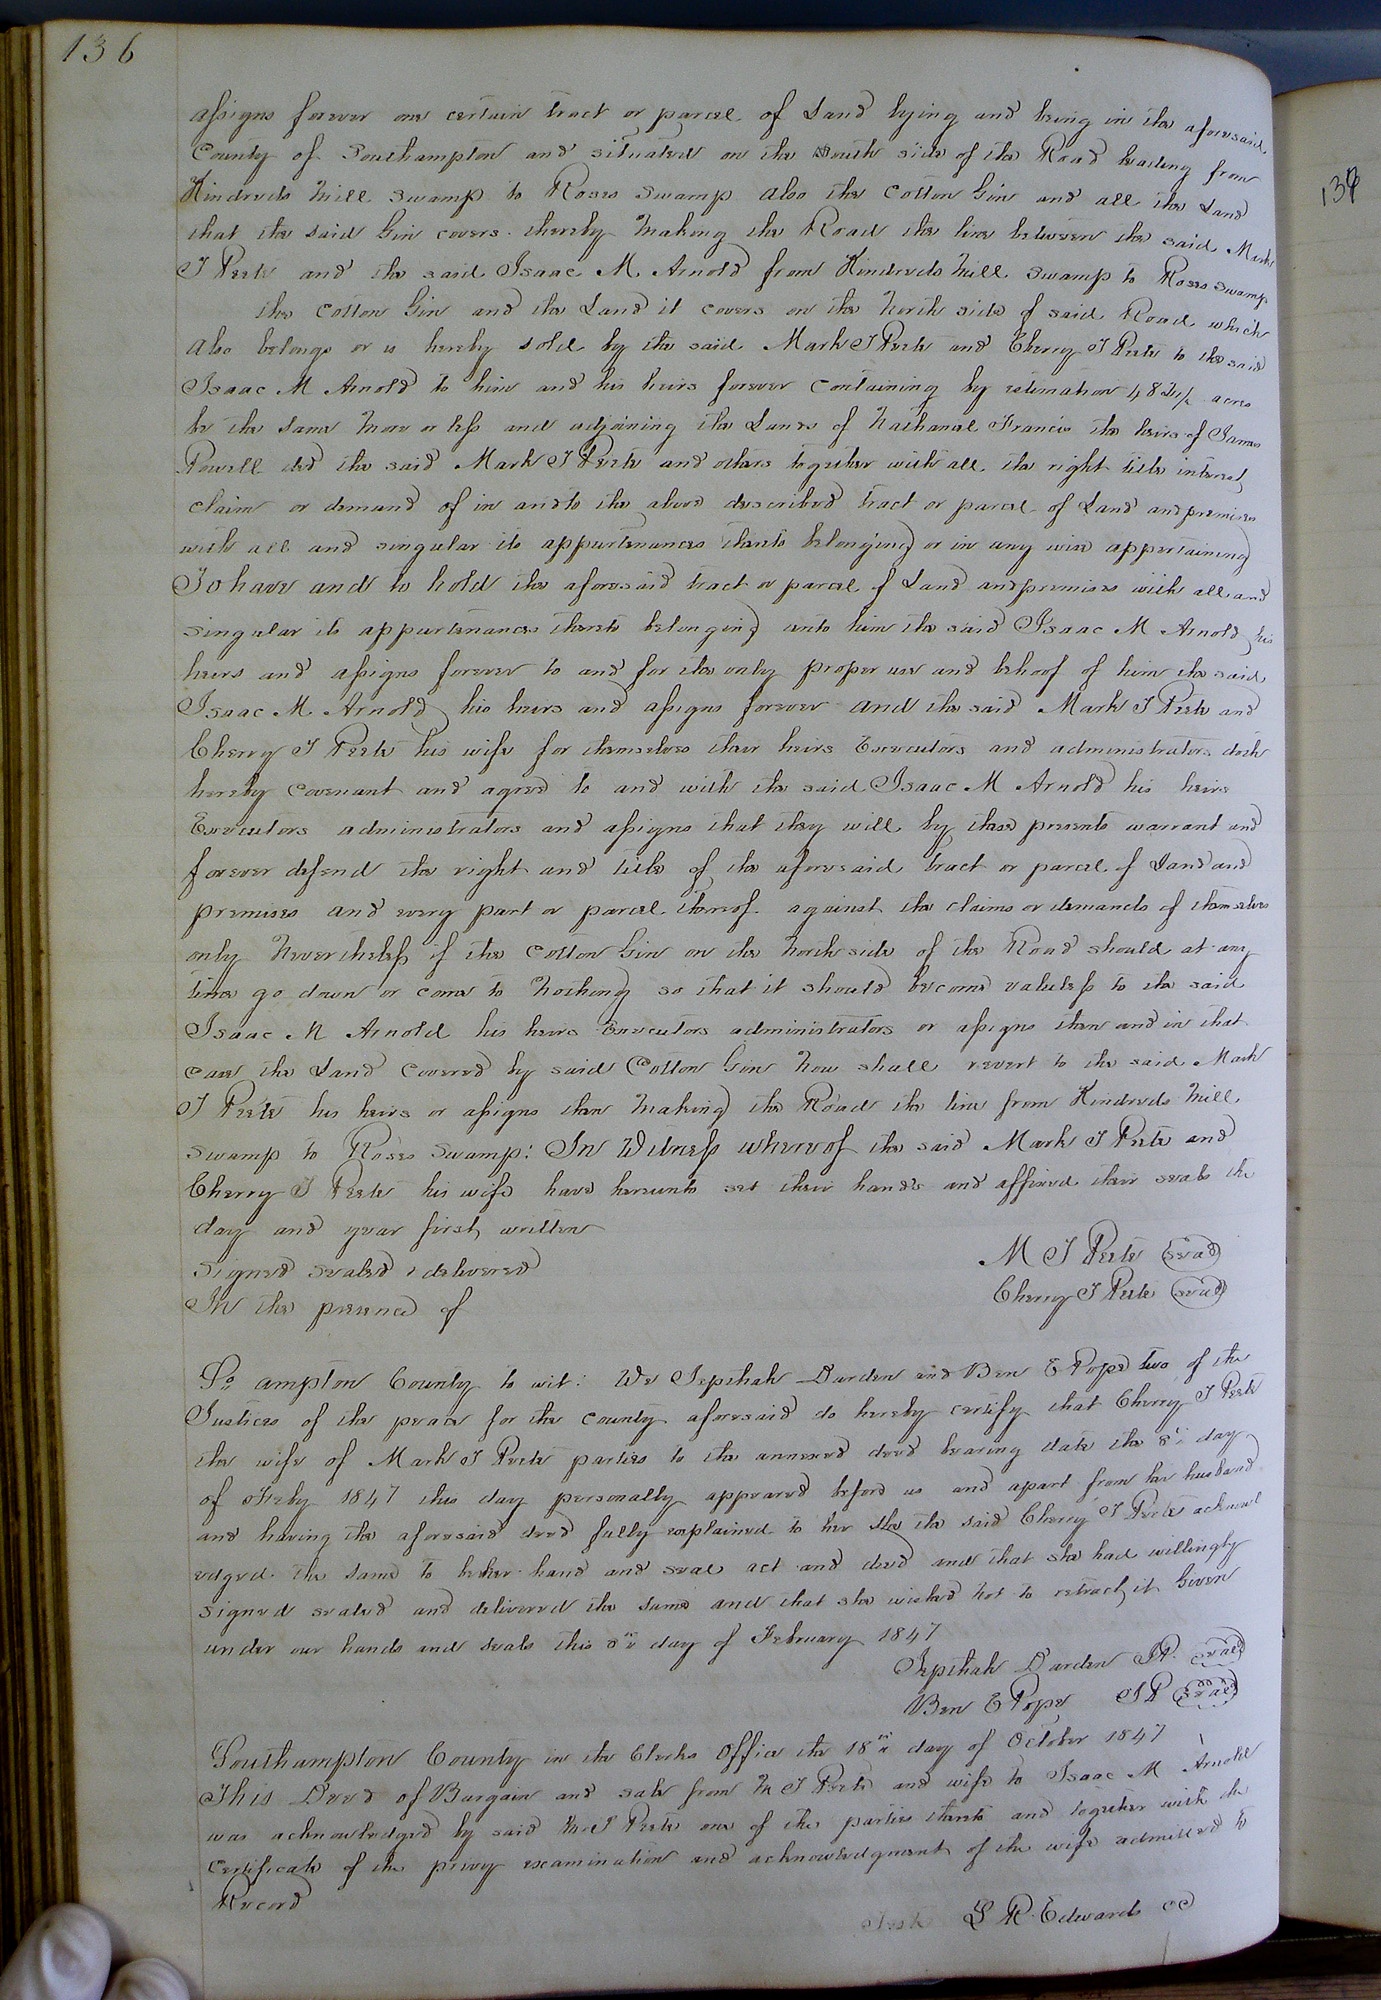 136
assigns forever one certain tract or parcel of Land lying and being in the aforesaid
County of Southampton and situated on the South side of the Road leading from
Kindreds Mill Swamp to Roses Swamp also the Cotton Gin and all the Land
that the said Gin covers thereby Making the Road the line between the said Mark
J Peete and the said Isaac M Arnold from Kindreds Mill Swamp to Roses Swamp
the Cotton Gin and the Land it covers on the North side of said Road which
also belongs or is hereby sold by the said Mark J Peete and Cherry J Peete to the said
Isaac M Arnold to him and his heirs forever Containing by estimation acres
be the same More or less and adjoining the Lands of Nathanael Francis the heirs of James
Powell dcd the said Mark J Peete and others together with all the right title interest
claim or demand of in and to the above described tract or parcel of Land and premises
with all and singular its appurtenances thereto belonging or in any wise appertaining
To have and to hold the aforesaid tract or parcel of Land and premises with all and
singular its appurtenances thereto belonging unto him the said Isaac M Arnold his
heirs and assigns forever to and for the only proper use and behoof of him the said
Isaac M Arnold his heirs and assigns forever and the said Mark J Peete and
Cherry J Peete his wife for themselves their heirs Executors and administrators doth
hereby Covenant and agree to and with the said Isaac M Arnold his heirs
Executors administrators and assigns that they will by these presents warrant and
forever defend the right and title of the aforesaid tract or parcel of Land and
premises and every part or parcel thereof against the claims or demands of themselves
only Nevertheless if the Cotton Gin on the North side of the Road should at any
time go down or come to Nothing so that it should become valuless to the said
Isaac M Arnold his heirs Executors administrators or assigns then and in that
case the Land Covered by said Cotton Gin Now shall revert to the said Mark
J Peete his heirs or assigns then Making the Road the line from Kindreds Mill
Swamp to Roses Swamp: In Witness whereof the said Mark J Peete and
Cherry J Peete his wife have hereunto set their hands and affixed their seals the
day and year first written
Signed sealed & delivered
In the presence of
M J Peete (seal)
Cherry J Peete (seal)
So ampton County to wit: We Jepthah Darden and Ben E Pope two of the
Justices of the peace for the County aforesaid do hereby certify that Cherry J Peete
the wife of Mark J Peete parties to the annexed deed bearing date the 8th day
of Feby 1847 this day personally appeared before us and apart from her husband
and having the aforesaid deed fully explained to her she the said Cherry J Peete acknowl
edged the same to be her hand and seal act and deed and that she had willingly
signed sealed and delivered the same and that she wished not to retract it Given
under our hands and seals this 8th day of February 1847
Jepthah Darden JP (seal)
Ben E Pope JP (seal)
Southampton County in the Clerks Office the 18th day of October 1847
This Deed of Bargain and sale from M J Peete and wife to Isaac M Arnold
was acknowledged by said M J Peete one of the parties thereto and together with the
Certificate of the privy examination and acknowledgment of the wife admitted to
Record
Test L R Edwards CC
137